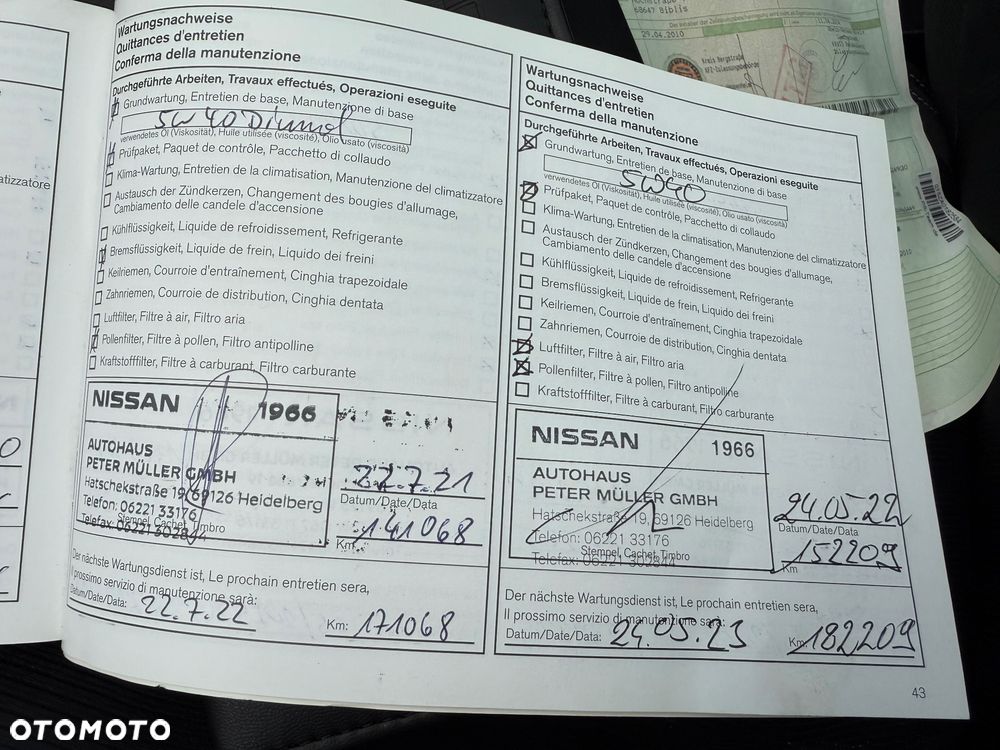 Wartungsnachweise
Quittances d'entretien
Conferma della manutenzione
Durchgeführte Arbeiten, Travaux effectués, Operazioni eseguite
Grundwartung, Entretien de base, Manutenzione di base
5W40
verwendetes Öl (Viskosität), Huile utilisée (viscosité), Olio usato (viscosità)
Prüfpaket, Paquet de contrôle, Pacchetto di collaudo
Klima-Wartung, Entretien de la climatisation, Manutenzione del climatizzatore
Austausch der Zündkerzen, Changement des bougies d'allumage,
Cambiamento delle candele d'accensione
Kühlflüssigkeit, Liquide de refroidissement, Refrigerante
Bremsflüssigkeit, Liquide de frein, Liquido dei freini
Keilriemen, Courroie d'entraînement, Cinghia trapezoidale
Zahnriemen, Courroie de distribution, Cinghia dentata
Luftfilter, Filtre à air, Filtro aria
Pollenfilter, Filtre à pollen, Filtro antipolline
Kraftstofffilter, Filtre à carburant, Filtro carburante
NISSAN 1966
AUTOHAUS
PETER MÜLLER GMBH
Hatschekstraße 19, 69126 Heidelberg
Telefon: 06221 33176
Stempel, Cachet, Timbro
Telefax: 06221 302844
22.7.21
Datum/Date/Data
141068
Km
Der nächste Wartungsdienst ist, Le prochain entretien sera,
Il prossimo servizio di manutenzione sarà:
Datum/Date/Data: 22.7.22 Km: 171068
Wartungsnachweise
Quittances d'entretien
Conferma della manutenzione
Durchgeführte Arbeiten, Travaux effectués, Operazioni eseguite
Grundwartung, Entretien de base, Manutenzione di base
5W40
verwendetes Öl (Viskosität), Huile utilisée (viscosité), Olio usato (viscosità)
Prüfpaket, Paquet de contrôle, Pacchetto di collaudo
Klima-Wartung, Entretien de la climatisation, Manutenzione del climatizzatore
Austausch der Zündkerzen, Changement des bougies d'allumage,
Cambiamento delle candele d'accensione
Kühlflüssigkeit, Liquide de refroidissement, Refrigerante
Bremsflüssigkeit, Liquide de frein, Liquido dei freini
Keilriemen, Courroie d'entraînement, Cinghia trapezoidale
Zahnriemen, Courroie de distribution, Cinghia dentata
Luftfilter, Filtre à air, Filtro aria
Pollenfilter, Filtre à pollen, Filtro antipolline
Kraftstofffilter, Filtre à carburant, Filtro carburante
NISSAN 1966
AUTOHAUS
PETER MÜLLER GMBH
Hatschekstraße 19, 69126 Heidelberg
Telefon: 06221 33176
Stempel, Cachet, Timbro
Telefax: 06221 302844
24.05.22
Datum/Date/Data
152209
Km
Der nächste Wartungsdienst ist, Le prochain entretien sera,
Il prossimo servizio di manutenzione sarà:
Datum/Date/Data: 24.05.23 Km: 182209
43
atizzatore
68647 Biblis
29.04.2010
Kreis Bergstraße
KFZ-Zulassungsbehörde
OTOMOTO